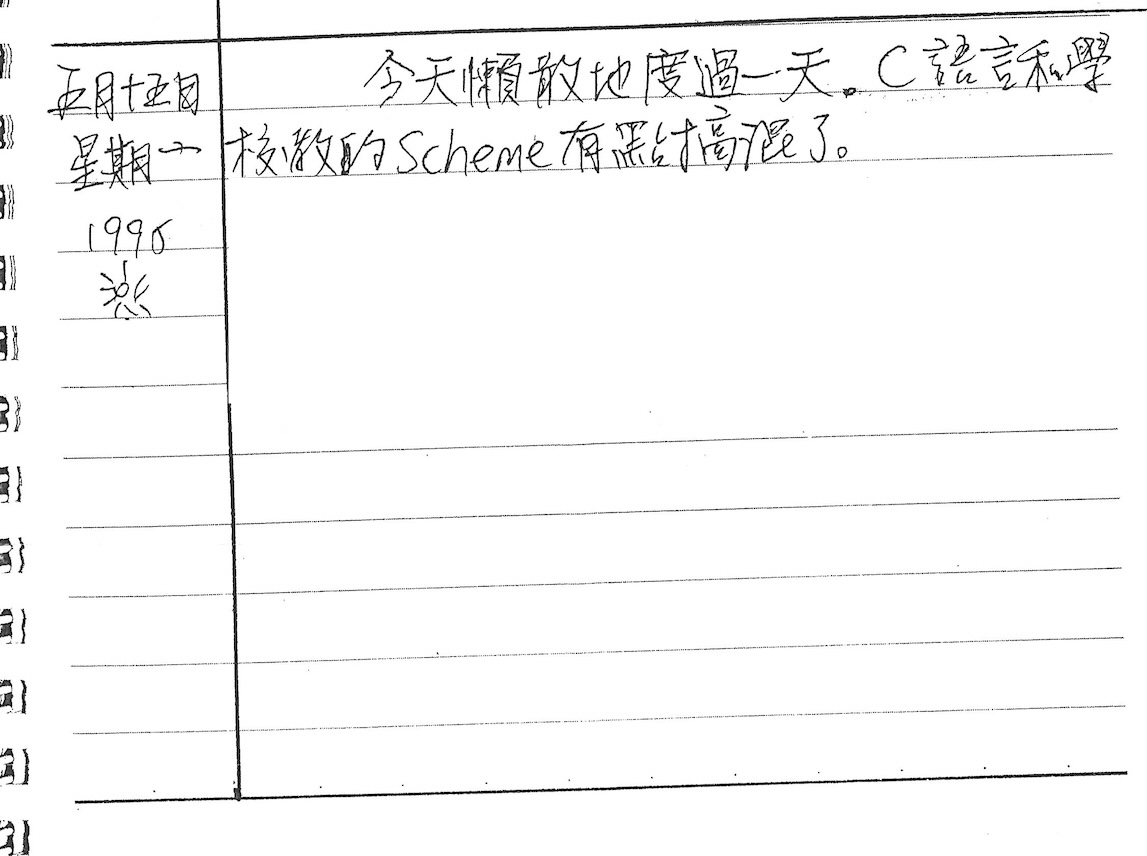 五月十五日
星期一
1995
今天懶散地度過一天。C語言和學
校教的Scheme有點搞混了。